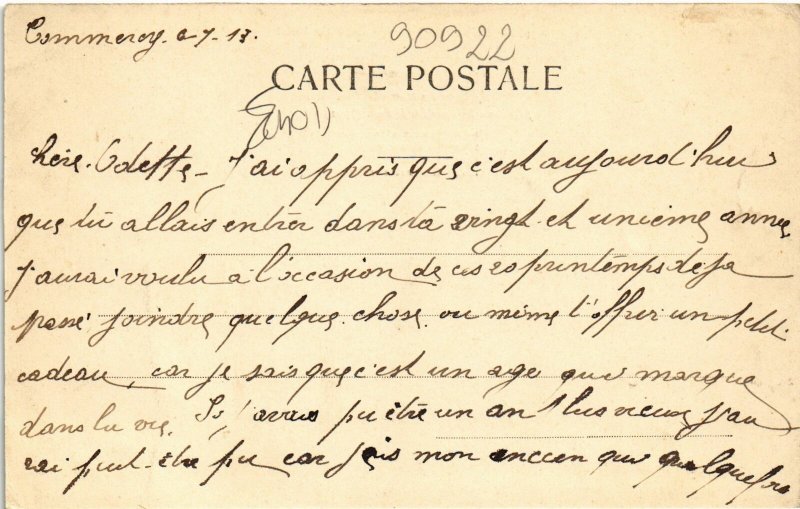 Commercy. 6-7-13.
90922
CARTE POSTALE
chère. Odette _ J'ai appris que c'est aujourd'hui
que tu allais entrer dans ta vingt et unième année
J'aurai voulu à l'occasion de ces 20 printemps deja
passé joindre quelque chose. ou même t'offrir un petit
cadeau, car je sais que c'est un age qui marque
dans la vie. Si j'avais pu être un an plus vieux j'au
rai peut-être pu car mon ancien qui quelquefois